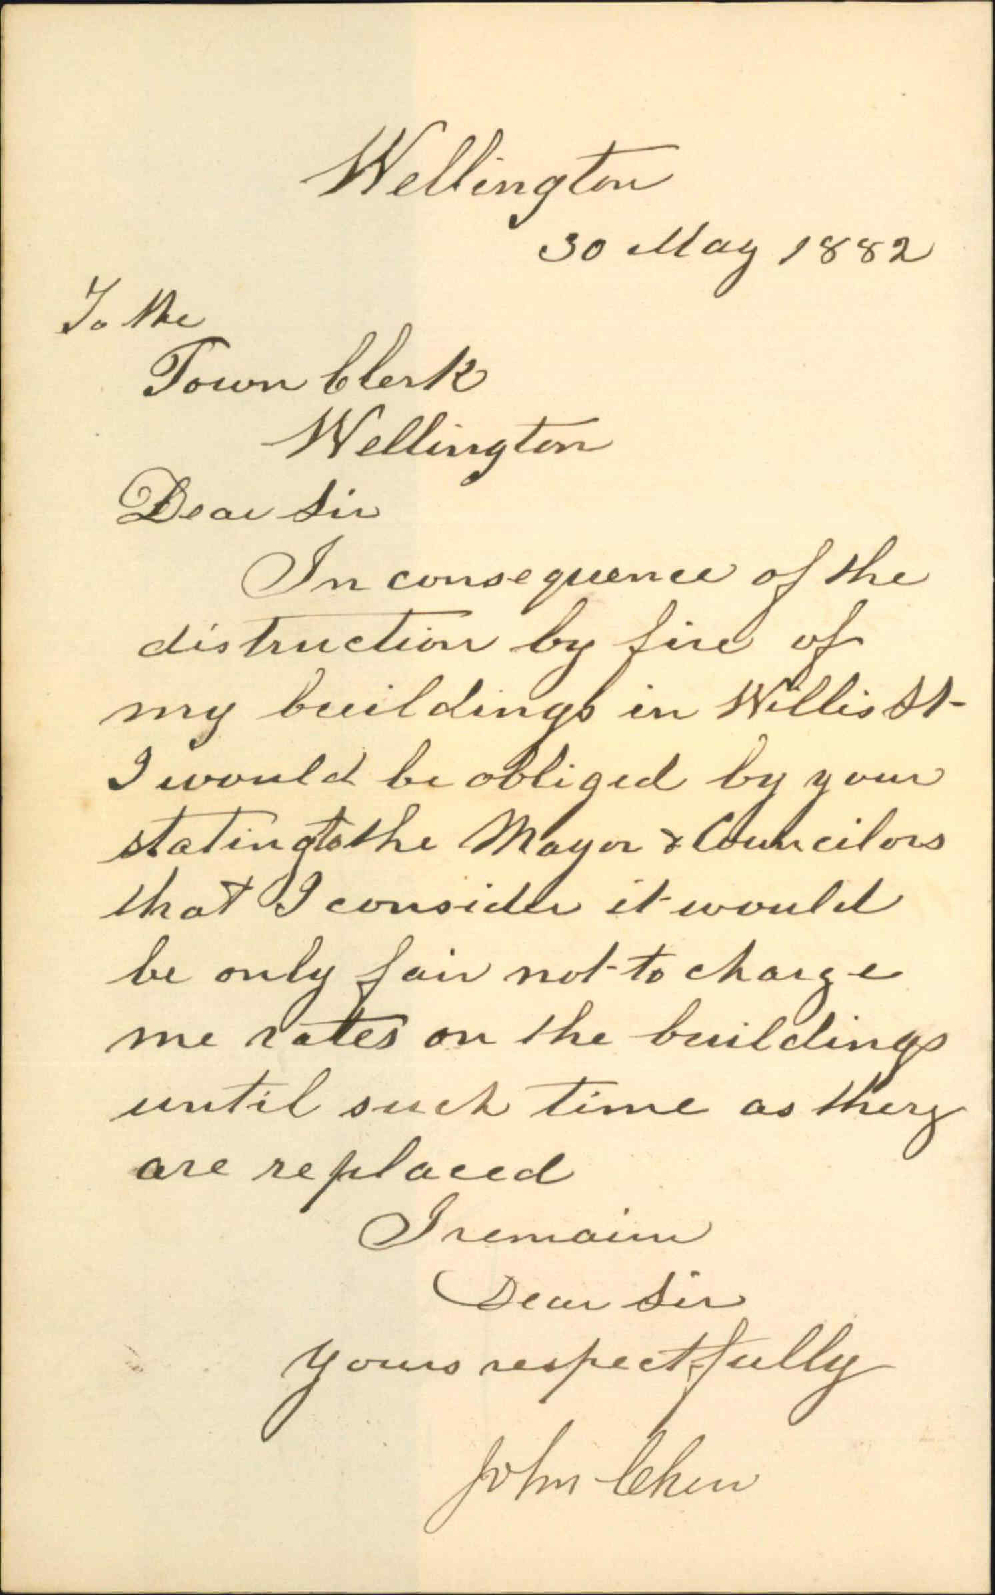 Wellington
30 May 1882
To the
Town Clerk
Wellington
Dear Sir
In consequence of the
distruction by fire of
my buildings in Willis St-
I would be obliged by your
stating to the Mayor & Councilors
that I consider it would
be only fair not to charge
me rates on the buildings
until such time as they
are replaced
I remain
Dear Sir
Yours respectfully
John Chew